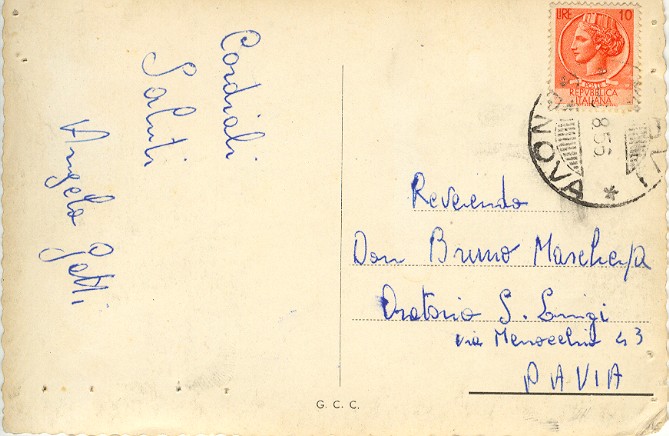 Cordiali
Saluti
Angelo Gatti
LIRE 10
REPVBBLICA
ITALIANA
8 56
NOVA
Reverendo
Don Bruno Mascherpa
Oratorio S. Luigi
via Menocchio 43
PAVIA
G. C. C.